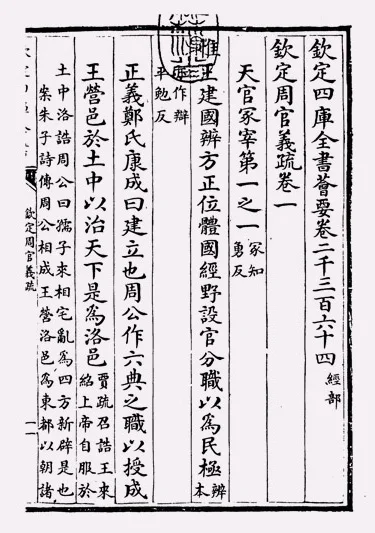 欽定四庫全書薈要卷二千三百六十四 經部
欽定周官義疏卷一
天官冢宰第一之一 冢知
勇反
惟王建國辨方正位體國經野設官分職以為民極 辨
本
亦作辯
平勉反
正義鄭氏康成曰建立也周公作六典之職以授成
王營邑於土中以治天下是為洛邑 賈疏召誥王來
紹上帝自服於
土中洛誥周公曰孺子來相宅亂為四方新辟是也
案朱子詩傳周公相成王營洛邑為東都以朝諸
欽定周官義疏
一